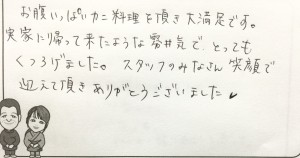 お腹いっぱいカニ料理を頂き大満足です。
実家に帰って来たような雰囲気で、とっても
くつろげました。スタッフのみなさん笑顔で
迎えて頂きありがとうございました